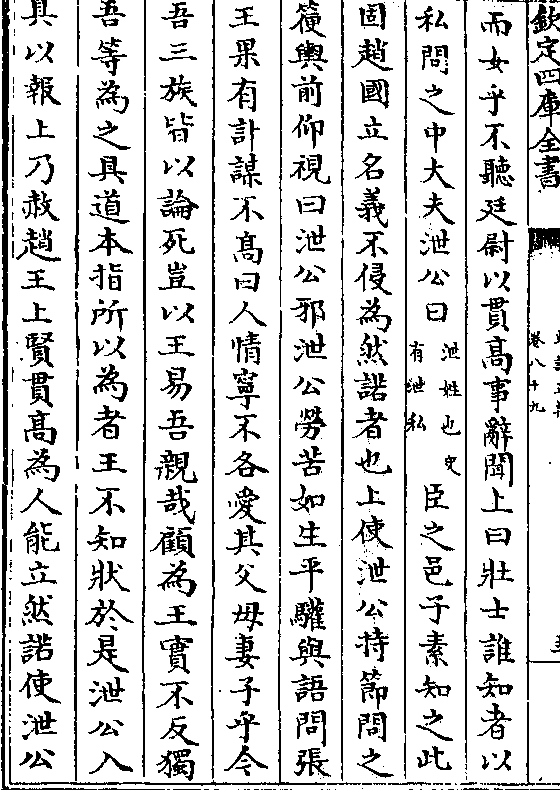 欽定四庫全書
卷八十九
而女乎不聽廷尉以貫髙事辭聞上曰壯士誰知者以
私問之中大夫泄公曰泄姓也史有泄私臣之邑子素知之此
固趙國立名義不侵為然諾者也上使泄公持節問之
箯輿前仰視曰泄公邪泄公勞苦如生平驩與語問張
王果有計謀不髙曰人情寧不各愛其父母妻子乎今
吾三族皆以論死豈以王易吾親哉顧為王實不反獨
吾等為之具道本指所以為者王不知狀於是泄公入
具以報上乃赦趙王上賢貫髙為人能立然諾使泄公